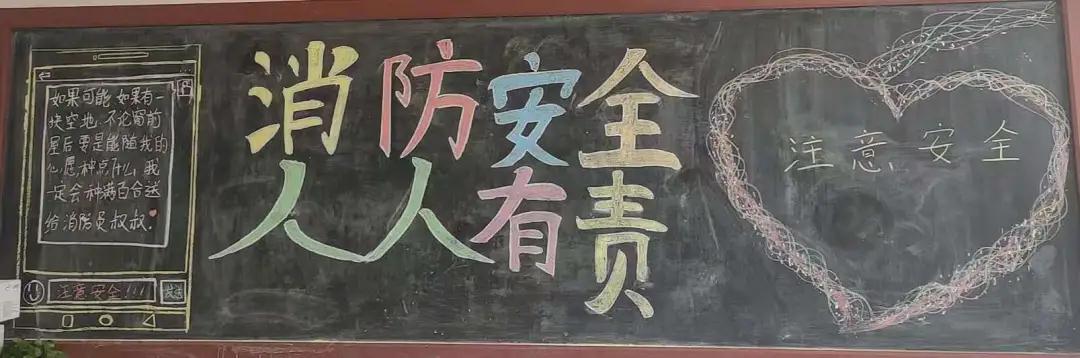 如果可能,如果有一
块空地,不论窗前
屋后要是能随我的
心愿种点什么,我
一定会种满百合送
给消防员叔叔.
注意安全!!!
发送
消防安全
人人有责
注意安全